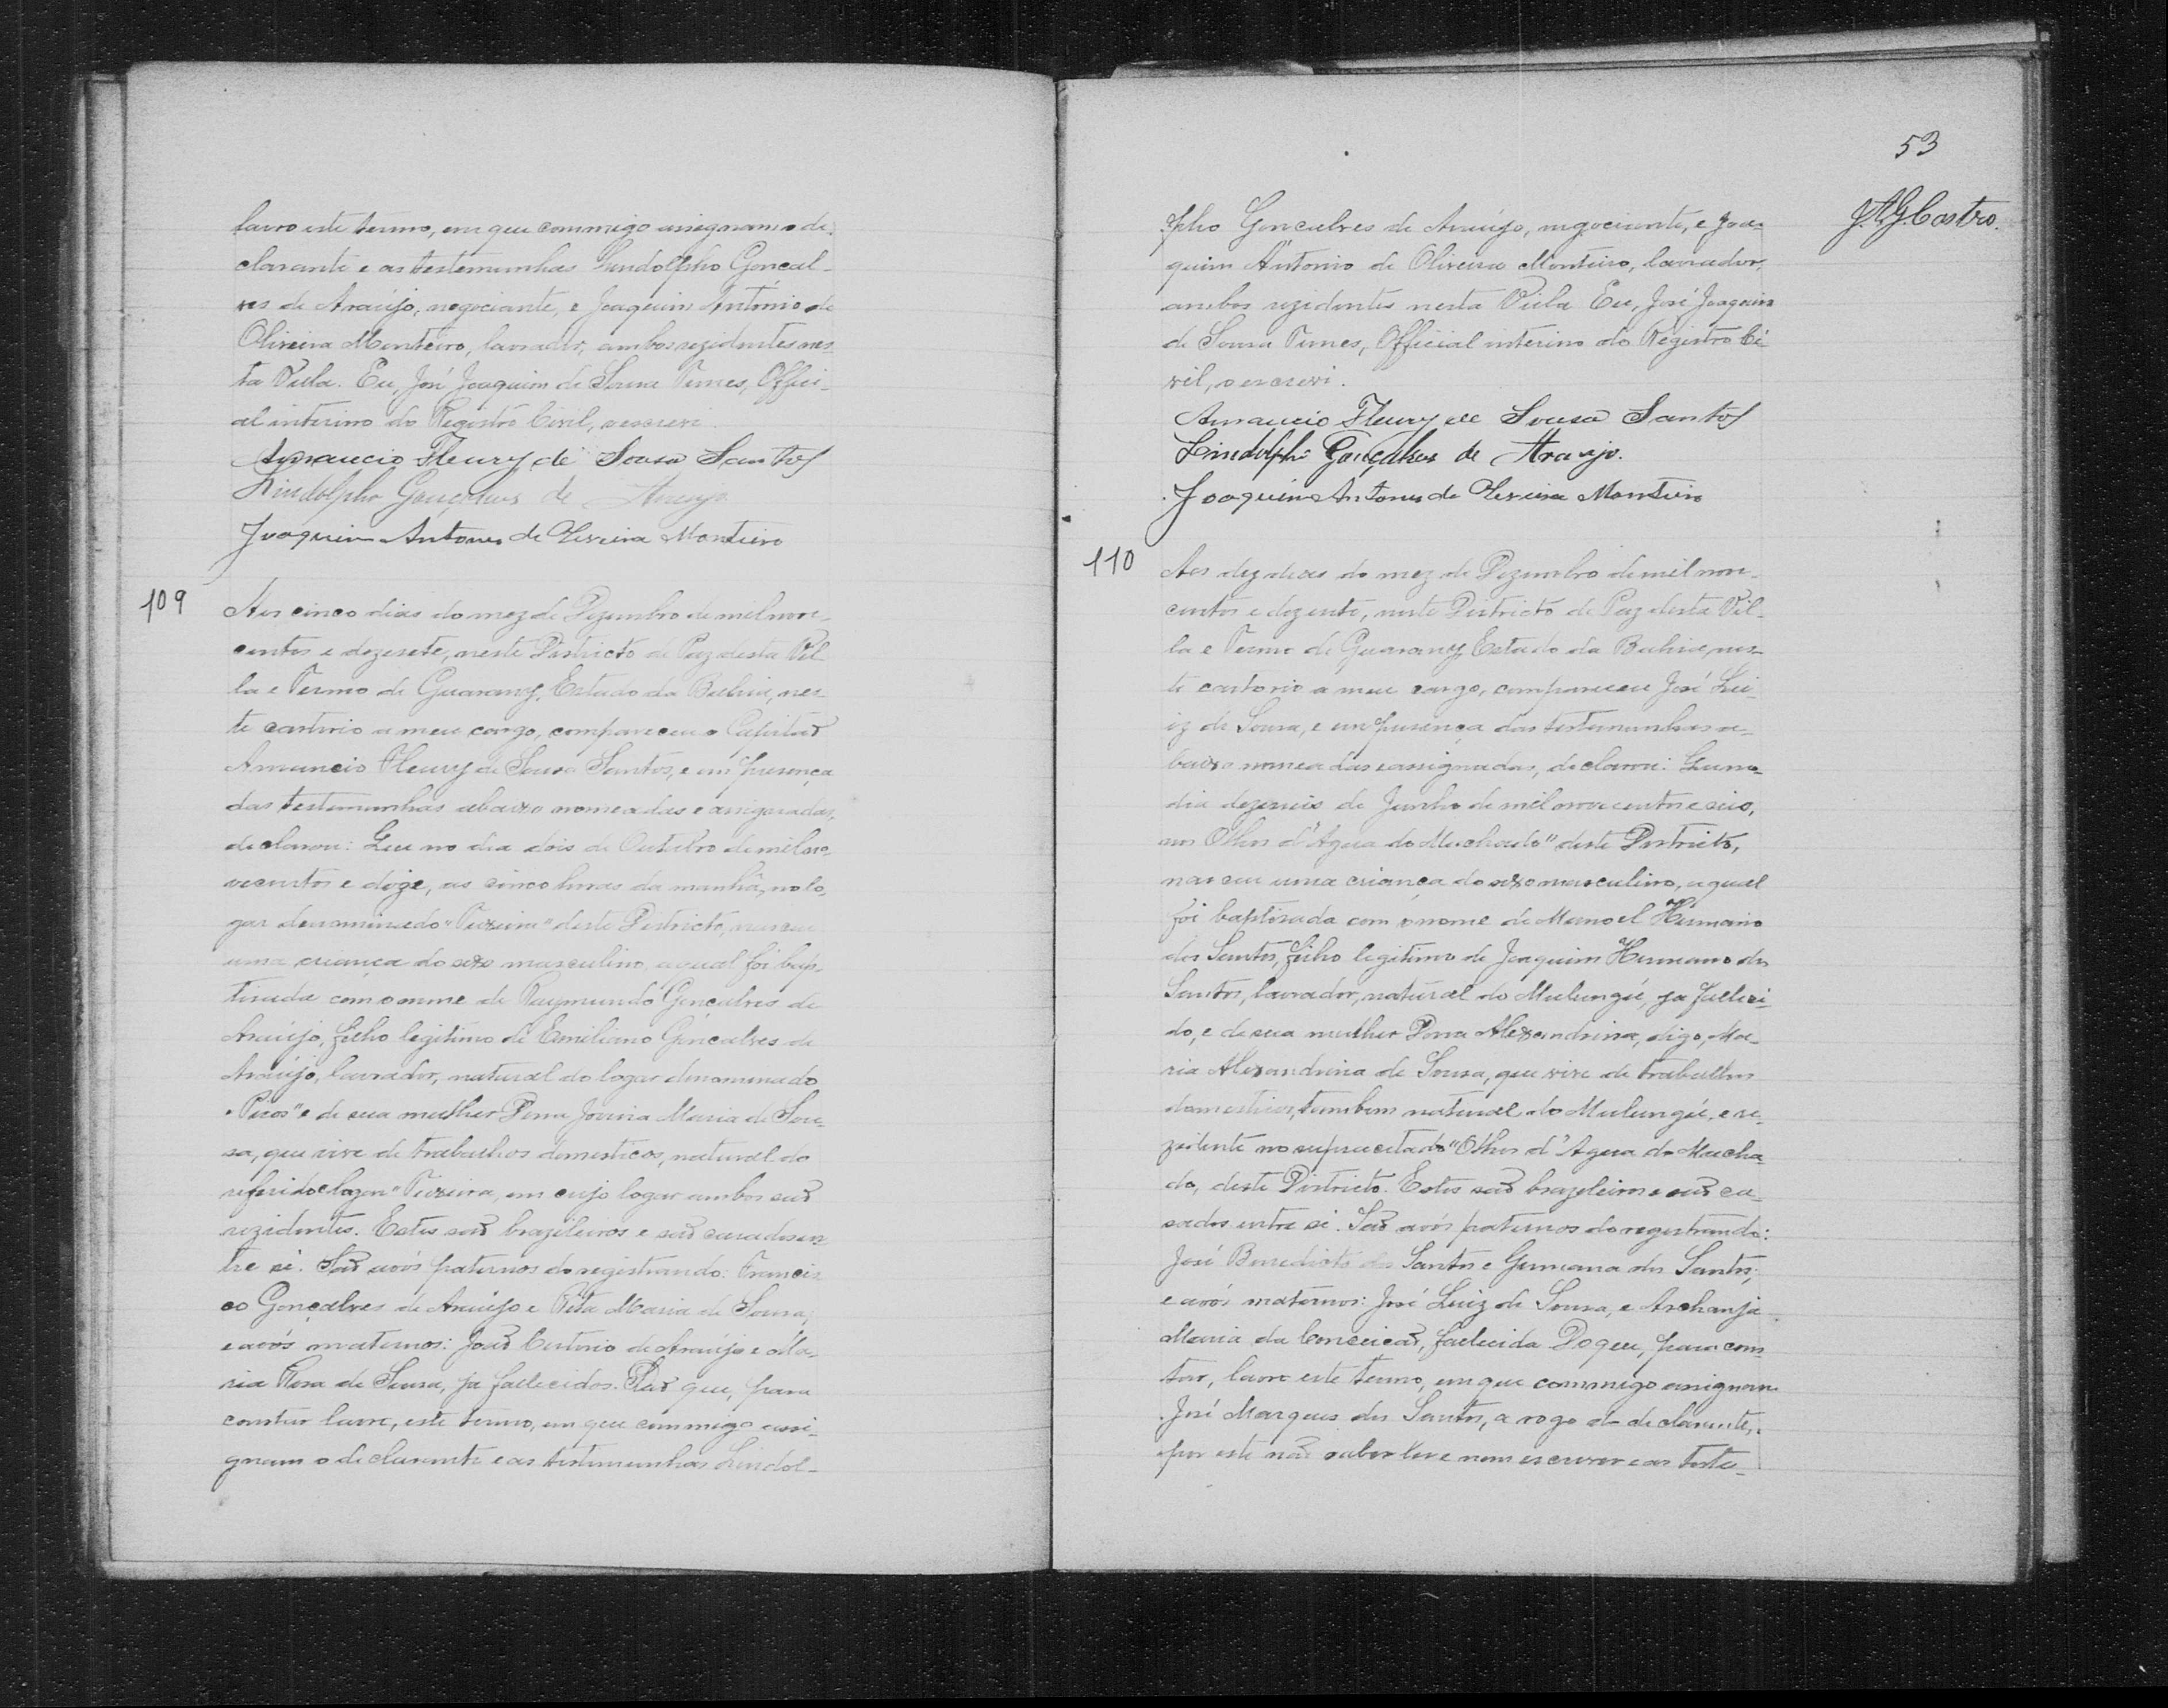 lavro este termo, em que commigo assignam o de-
clarante e as testemunhas Lindolpho Goncal-
ves de Araújo, negociante, e Joaquim António de
Oliveira Monteiro, lavrador, ambos rezidentes nes-
ta Villa. Eu, José Joaquim de Sousa Nunes, Offici-
al interino do Registro Civil, o escrevi
Amancio Fleury de Sousa Santos
Lindolpho Gonçalves de Araujo
Joaquim Antonio de Oliveira Monteiro
109
Aos cinco dias do mez de Dezembro de mil nove-
centos e dezesete, neste Districto de Paz desta Vil-
la e Termo de Guarany, Estado da Bahia, nes-
te cartorio a meu cargo, compareceu o Capitão
Amancio Fleury de Sousa Santos, e em presença
das testemunhas abaixo nomeadas e assignadas,
declarou: Que no dia dois de Outubro de mil no-
vecentos e doze, as cinco horas da manhã, no lo-
gar denominado "Teixeira" deste Districto, nasceu
uma criança do sexo masculino, a qual foi bap-
tisada com o nome de Raymundo Gonçalves de
Araújo, filho legitimo de Emiliano Gonçalves de
Araújo, lavrador, natural do logar denominado
e de sua mulher Dona Jovina Maria de Sou-
sa, que vive de trabalhos domesticos, natural do
referido logar "Teixeira, em cujo logar ambos são
rezidentes. Estes são brazileiros e são casados en-
tre si. São avós paternos do registrando: Francis-
co Gonçalves de Araújo e Rita Maria de Sousa;
e avós maternos: João de Araújo e Ma-
ria Rosa de Sousa, ja fallecidos. Do que, para
constar lavro, este termo, em que commigo assi-
gnam o declarante e as testemunhas Lindol-
53
J.A.G.Castro.
pho Goncalves de Araújo, negociante, e Joa-
quim Antonio de Oliveira Monteiro, lavrador,
ambos rezidentes nesta Villa Eu, José Joaquim
de Sousa Nunes, Official interino do Registro Ci-
vil, o escrevi.
Amancio Fleury de Sousa Santos
Lindolpho Gonçalves de Araujo.
Joaquim Antonio de Oliveira Monteiro
110
Aos dez dias do mez de Dezembro de mil nove-
centos e dezesete, neste Districto de Paz desta Vil-
la e Termo de Guarany, Estado da Bahia, nes-
te cartorio a meu cargo, compareceu José Lu-
iz de Sousa, e em presença das testemunhas a-
baixo nomeadas e assignadas, declarou: Que no
dia dezeseis de Junho de mil novecentos e seis,
nos Olhos d'Agua do Machado" deste Districto,
nasceu uma criança do sexo masculino, a qual
foi baptisada com o nome de Manoel Hermano
dos Santos, filho legitimo de Joaquim Hermano dos
Santos, lavrador, natural do Mulungú, ja falleci-
do, e de sua mulher Dona Alexandrina, digo, Ma-
ria Alexandrina de Sousa, que vive de trabalhos
domesticos, tambem natural do Mulungú, e re-
zidente no supracitado "Olhos d'Agua do Macha-
do, deste Districto. Estes são brazileiros e são ca-
sados entre si. São avós paternos do registrando:
José Benedicto dos Santos e Germana dos Santos;
e avós maternos: José Luiz de Sousa, e Archanja
Maria da Conceicão, fallecida Do que, para cons-
tar, lavro este termo, em que commigo assignam
José Marques dos Santos, a rogo do declarante,
por este não saber ler e nem escrever e as teste-